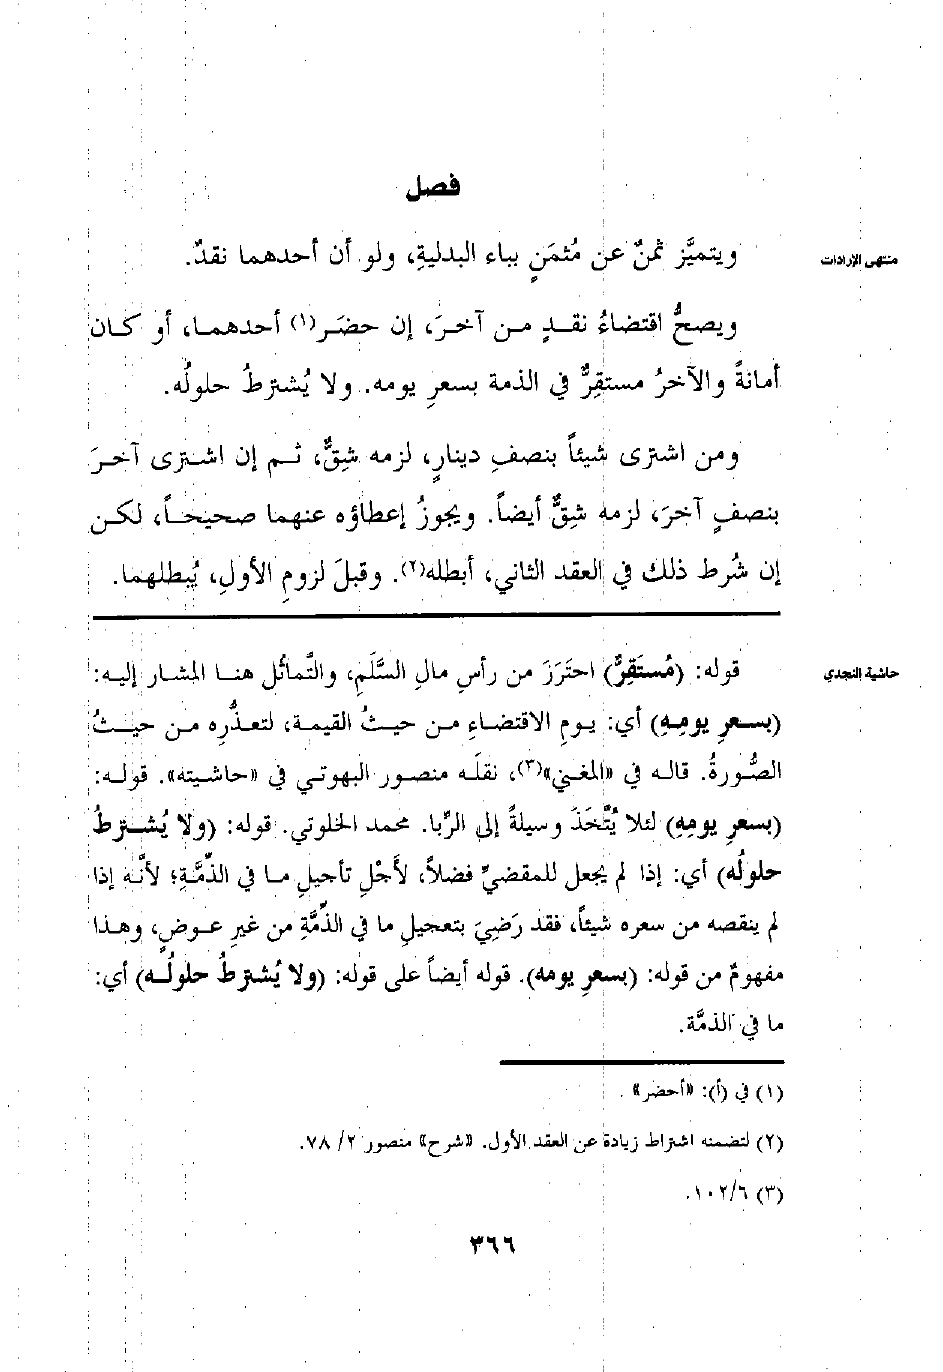 فصل
منتهى الإرادات
ويتميَّز ثمنٌ عن مُثمَنٍ بباء البدليةِ، ولو أن أحدهما نقدٌ.
ويصحُّ اقتضاءُ نقدٍ من آخرَ، إن حضَر(١) أحدهما، أو كان
أمانةً والآخرُ مستقِرٌّ في الذمة بسعرِ يومه. ولا يُشترطُ حلولُه.
ومن اشترى شيئاً بنصفِ دينارٍ، لزمه شِقٌّ، ثم إن اشترى آخرَ
بنصفٍ آخرَ، لزمه شِقٌّ أيضاً. ويجوزُ إعطاؤه عنهما صحيحاً، لكن
إن شُرط ذلك في العقد الثاني، أبطله(٢). وقبلَ لزومِ الأولِ، يُبطلهما.
حاشية النجدي
قوله: (مُستَقِرٌّ) احتَرَزَ من رأسِ مالِ السَّلَمِ، والتَّماثُل هنا المشار إليه:
(بسعرِ يومِهِ) أي: يومِ الاقتضاءِ من حيثُ القيمة، لتعذُّرِه من حيثُ
الصُّورةُ. قاله في «المغني»(٣)، نقلَه منصور البهوتي في «حاشيته». قوله:
(بسعرِ يومِهِ) لئلا يُتَّخَذَ وسيلةً إلى الرِّبا. محمد الخلوتي. قوله: (ولا يُشترطُ
حلولُه) أي: إذا لم يجعل للمقضيِّ فضلاً، لأَجْلِ تأجيلِ ما في الذِّمَّةِ؛ لأنَّه إذا
لم ينقصه من سعره شيئاً، فقد رَضِيَ بتعجيلِ ما في الذِّمَّةِ من غيرِ عوضٍ، وهذا
مفهومٌ من قوله: (بسعرِ يومه). قوله أيضاً على قوله: (ولا يُشترطُ حلولُه) أي:
ما في الذمَّة.
(١) في (أ): «أحضر» .
(٢) لتضمنه اشتراط زيادة عن العقد الأول. «شرح» منصور ٢/ ٧٨.
(٣) ١٠٢/٦.
٣٦٦